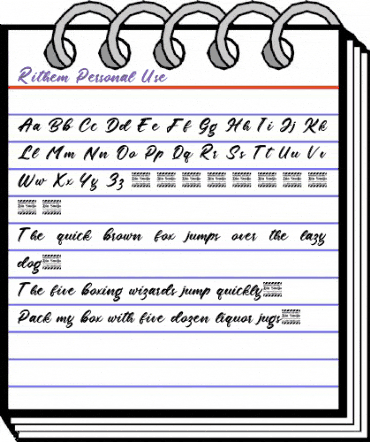 Rithem Personal Use
Aa Bb Cc Dd Ee Ff Gg Hh Ii Jj Kk
Ll Mm Nn Oo Pp Qq Rr Ss Tt Uu Vv
Ww Xx Yy Zz
The quick brown fox jumps over the lazy
dog
The five boxing wizards jump quickly
Pack my box with five dozen liquor jugs